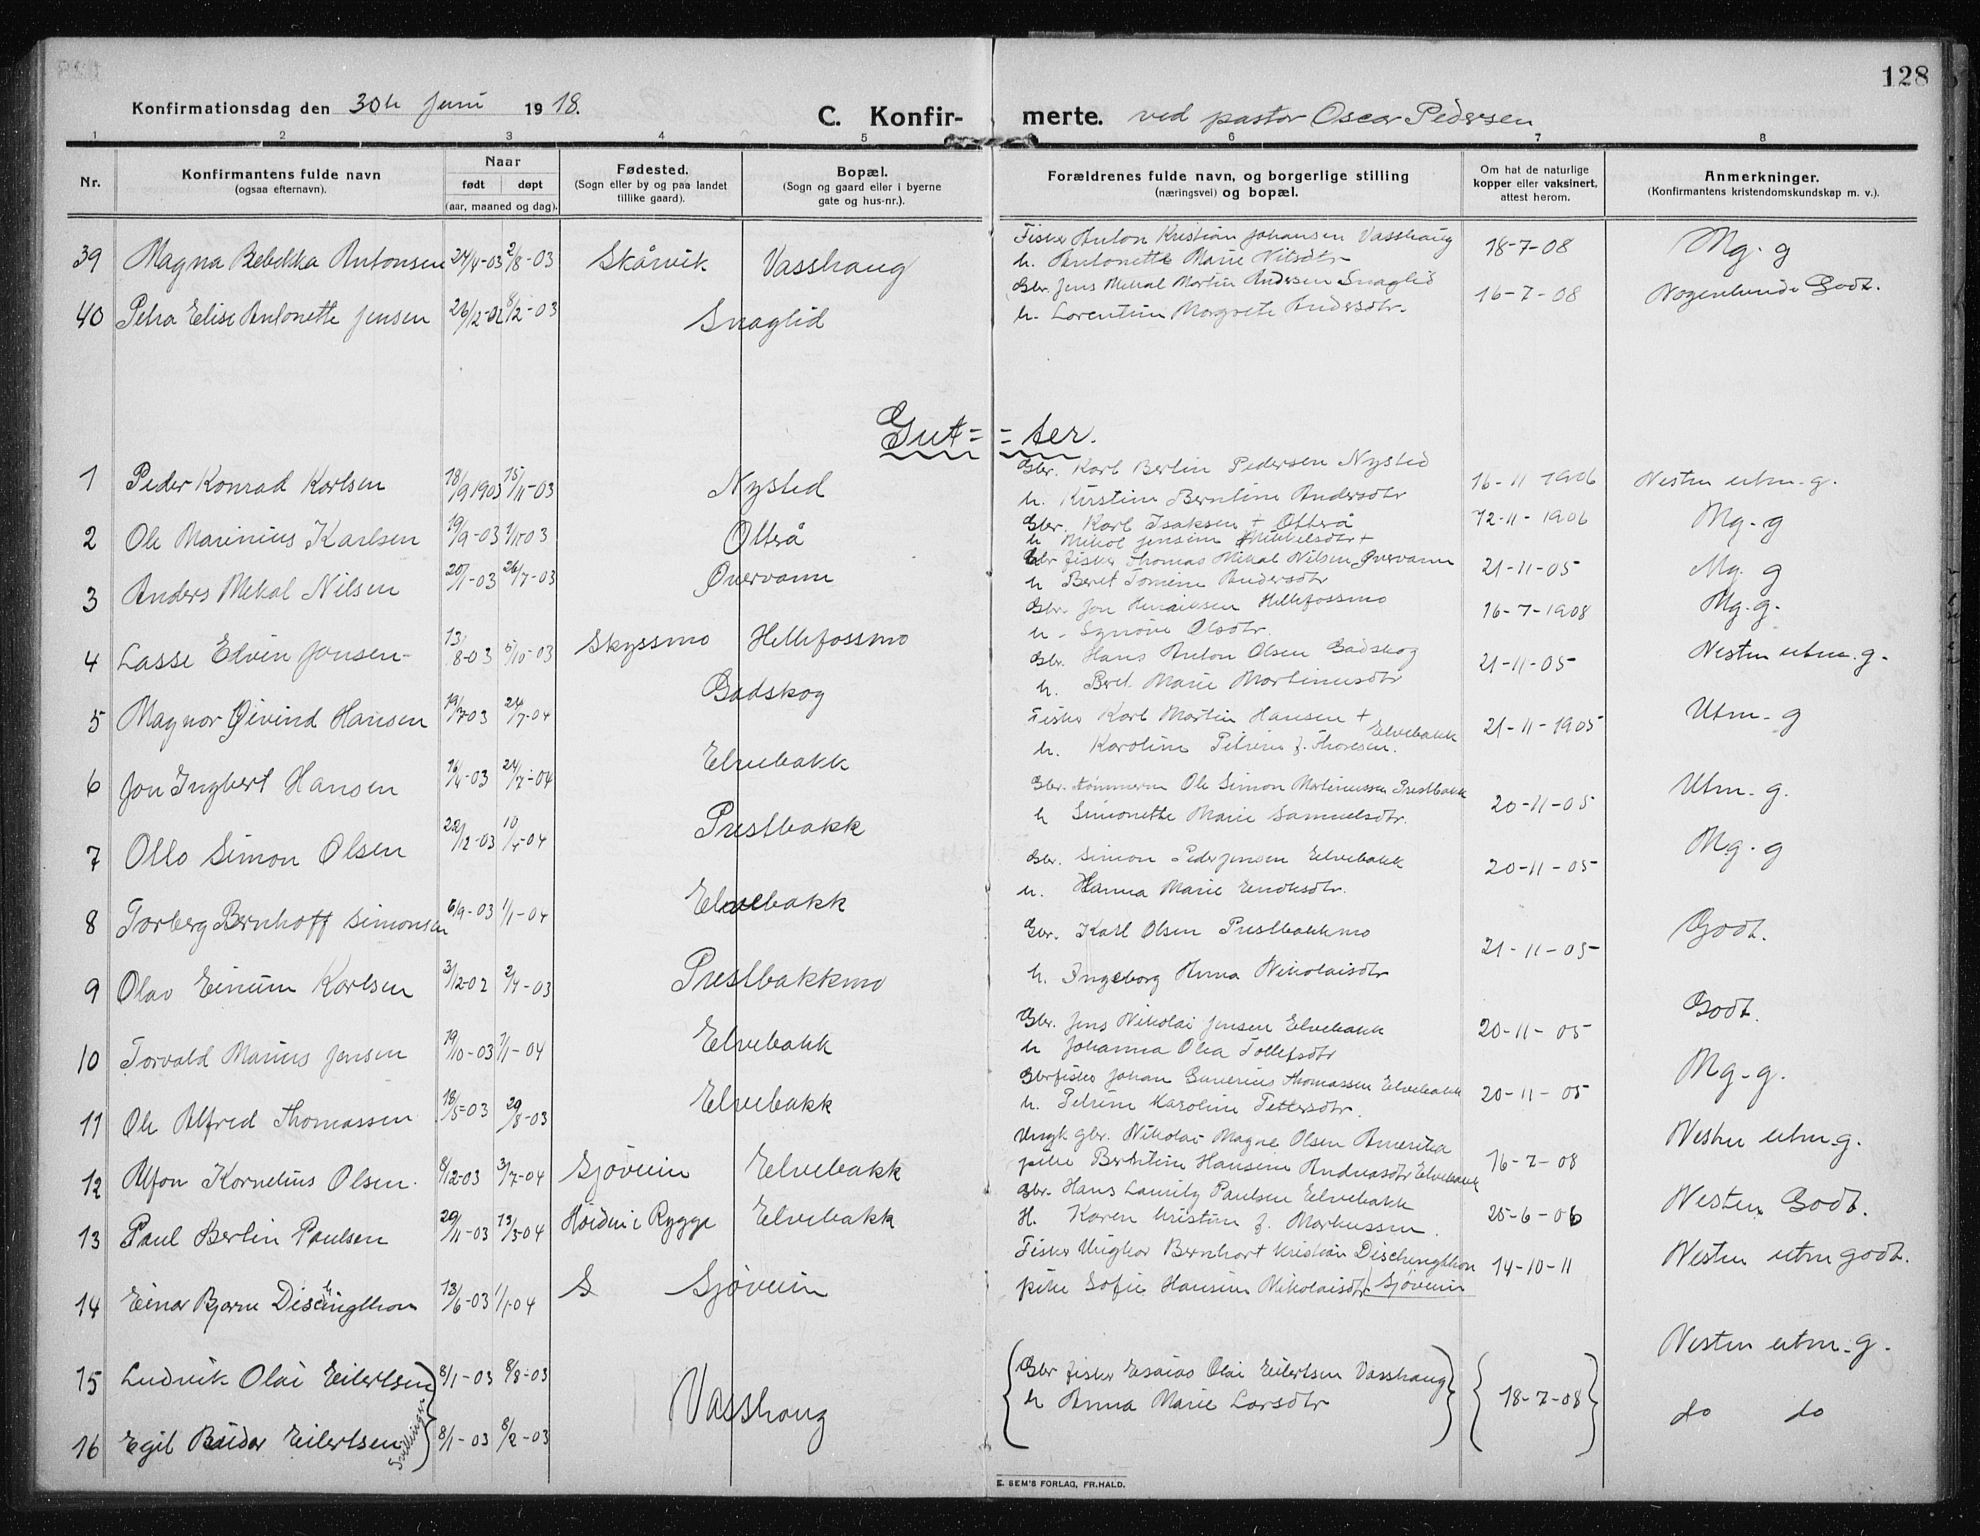 128
Konfirmationsdag den 30th Juni 1918.
C. Konfir- merte. ved pastor Oscar Pedersen
1 2 3 4 5 6 7 8
Nr. Konfirmantens fulde navn (ogsaa efternavn). Naar født døpt (aar, maaned og dag). Fødested. (Sogn eller by og paa landet tillike gaard). Bopæl. (Sogn og gaard eller i byerne gate og hus-nr.). Forældrenes fulde navn, og borgerlige stilling (næringsvei) og bopæl. Om hat de naturlige kopper eller vaksinert, attest herom. Anmerkninger. (Konfirmantens kristendomskundskap m. v.).
39 Magna Rebekka Antonsen 24/4-03 2/8-03 Skårvik Vasshaug Fisker Anton Kristian Johansen Vasshaug 18-7-08 Mg. g
h. Antonette Marie Nilsdtr.
40 Petra Elise Antonette Jensen 26/12-02 8/2-03 Snaglid Gbr. Jens Mekal Martin Andersen Snaglid 16-7-08 Nogenlunde Godt.
h. Lorentine Margrete Andersdtr.
Gut= =ter.
1 Peder Konrad Karlsen 18/9 1903 15/11-03 Nysted Gbr. Karl Berlin Pedersen Nysted 16-11-1906 Nesten utm. g.
h. Kirstine Berntine Andersdtr
2 Ole Marinius Karlsen 19/9-03 1/11 03 Otterå Gbr. Karl Isaksen + Otterå 12-11-1906 Mg. g
h Mikol Jensine Mikkelsdtr +
3 Anders Mekal Nilsen 20/1-03 26/7-03 Øvervann Gbr fisker Thomas Mikal Nilsen Øvervann 21-11-05 Mg. g
h Beret Tomine Andersdtr
4 Lasse Edvin Jonsen 13/8-03 5/10-03 Skyssmo Hellefossmo Gbr. Jon Henriksen Hellefossmo 16-7-1908 Mg. g.
h. Synøve Olsdtr.
5 Magnor Øivind Hansen 19/7-03 24/7-04 Gadskog Gbr. Hans Anton Olsen Gadskog 21-11-05 Nesten utm. g.
h. Beret Marie Martinusdtr
6 Jon Ingbert Hansen 16/4-03 24/7-04 Elvebakk Fisker Karl Martin Hansen + Elvebakk 21-11-1905 Utm. g
h. Karoline Petrine f. Thoresen.
7 Otto Simon Olsen 22/12-03 10/4-04 Prestbakk Gbr. tømmerm Ole Simon Martinussen Prestbakk 20-11-05 Utm. g.
h Simonette Marie Samuelsdtr.
8 Torberg Bernhoff Simonsen 6/9-03 1/1-04 Elvebakk Gbr. Simon Peder Jensen Elvebakk 20-11-05 Mg. g
h. Hanna Marie Enoksdtr.
9 Olav Einum Karlsen 3/12-02 2/4-03 Prestbakkmo Gbr. Karl Olsen Prestbakkmo 21-11-05 Godt.
h. Ingeborg Anna Nikolaisdtr
10 Torvald Marius Jensen 19/10-03 1/1-04 Elvebakk Gbr. Jens Nikolai Jensen Elvebakk 20-11-05 Godt.
h Johanna Olea Tollefsdtr
11 Ole Alfred Thomassen 18/5-03 29/8-03 Elvebakk Gbr fisker Johan Severius Thomassen Elvebakk 20-11-05 Mg. g.
h. Petrine Karoline Pettersdtr.
12 Alfon Kornelius Olsen. 8/12-03 3/7-04 Sjøveien Elvebakk Ungk gbr. Nikolai Magne Olsen Amerika 16-7-08 Nesten utm. g.
pike Berntine Hansine Andreasdtr Elvebakk
13 Paul Berlin Paulsen 29/11-03 13/3-04 Høiden i Rygge Elvebakk Gbr. Hans Lauritz Paulsen Elvebakk 25-6-06 Nesten Godt.
H. Karen Kristine f. Markussen.
14 Einar Bjarne Dischingthon 13/6-03 1/1-04 S Sjøveien Fisker Ungkar Bernhart Kristian Dischingthon 14-10-11 Nesten utm godt.
pike Sofie Hansine Nikolaisdtr Sjøveien
15 Ludvik Olai Eilertsen 8/1-03 8/8-03 Vasshaug Gbr fisker Esaias Olai Eilertsen Vasshaug 18-7-08 Nesten utm. g.
h Anna Marie Larsdtr
16 Egil Reidar Eilertsen Tvillinger 8/1-03 8/2-03 do do
E. SEM'S FORLAG, FR.HALD.